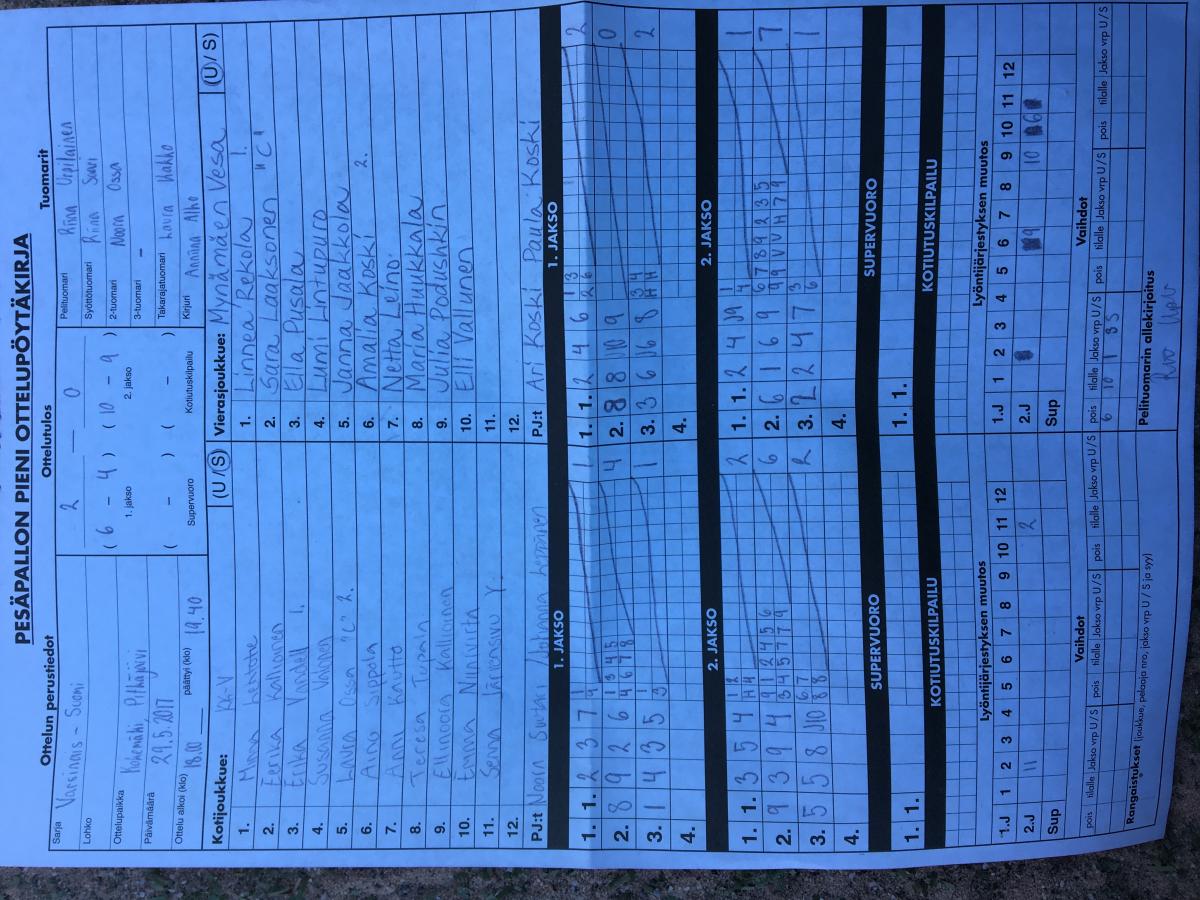 PESÄPALLON PIENI OTTELUPÖYTÄKIRJA
Ottelun perustiedot
Sarja Varsinais-Suomi
Lohko
Ottelupaikka Kokemäki, Pitkäjärvi
Päivämäärä 29.5.2017
Ottelu alkoi (klo) 18.00 päättyi (klo) 19.40
Ottelutulos
2 — 0
( 6 – 4 ) ( 10 – 9 )
1. jakso 2. jakso
( – ) ( – )
Supervuoro Kotiutuskilpailu
Tuomarit
Pelituomari Riina Urpilainen
Syöttötuomari Riina Suovi
2-tuomari Noora Ossa
3-tuomari –
Takarajatuomari Laura Kiakko
Kirjuri Anniina Alho
Kotijoukkue: KK-V (U/S)
1. Minna Lehtotie
2. Eerika Kallioinen
3. Erika Vandell 1.
4. Susanna Valtonen
5. Laura Ossa "C" 2.
6. Aino Sippola
7. Anni Kitto
8. Teresa Tupala
9. Ellinoora Kallioinen
10. Emma Niinivirta
11. Senna Järvensivu Y.
12.
PJ:t Noora Suvari, Johanna Leppänen
Vierasjoukkue: Mynämäen Vesa (U/S)
1. Linnea Rekola 1.
2. Sara Laaksonen "C"
3. Ella Pusala
4. Lumi Lintupuro
5. Janna Jaakkola
6. Amalia Koski 2.
7. Netta Leino
8. Maria Huukkala
9. Julia Podushkin
10. Elli Vallunen
11.
12.
PJ:t Ari Koski Paula Koski
1. JAKSO
1. 1. 2 3 7 1 4 1
2. 8 9 2 6 1 3 4 5 4 6 7 8 4
3. 1 4 3 5 1 3 1
4.
1. JAKSO
1. 1. 2 4 6 1 3 2 6 2
2. 8 8 10 9 0
3. 3 6 16 8 3 4 H H 2
4.
2. JAKSO
1. 1. 3 5 4 1 2 H 4 2
2. 9 3 9 4 9 1 2 4 5 6 3 4 5 7 7 9 6
3. 5 5 8 J10 6 7 8 8 2
4.
2. JAKSO
1. 1. 2 4 J9 1 4 1
2. 6 1 6 9 6 7 8 9 2 3 5 9 9 V V H 7 9 7
3. 2 2 4 7 3 6 1
4.
SUPERVUORO
1. 1.
SUPERVUORO
1. 1.
KOTIUTUSKILPAILU
KOTIUTUSKILPAILU
Lyöntijärjestyksen muutos
1.J 1 2 3 4 5 6 7 8 9 10 11 12
2.J 11 2
Sup
Lyöntijärjestyksen muutos
1.J 1 2 3 4 5 6 7 8 9 10 11 12
2.J 9 10 6
Sup
Vaihdot
pois tilalle Jakso vrp U/S pois tilalle Jakso vrp U/S pois tilalle Jakso vrp U/S
Vaihdot
pois tilalle Jakso vrp U/S pois tilalle Jakso vrp U/S pois tilalle Jakso vrp U/S
6 10 1 3S
Rangaistukset (joukkue, pelaaja nro, jakso vrp U / S ja syy)
Pelituomarin allekirjoitus